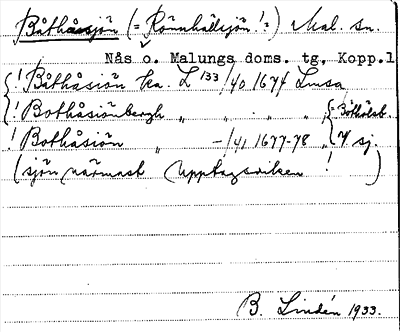 Båthåsjön (= Rönnhålsjön!?) Mal. sn.
Nås o. Malungs doms. tg, Kopp.l
! Båthåsiön ka. L 133/40 1674 Lmsa
! Bothåsiönbergh " " " " Båthålsb.
! Bothåsiön " -/41 1677-78 " ny sj.
(sjön närmast Upptagsviken!)
B. Lindén 1933.